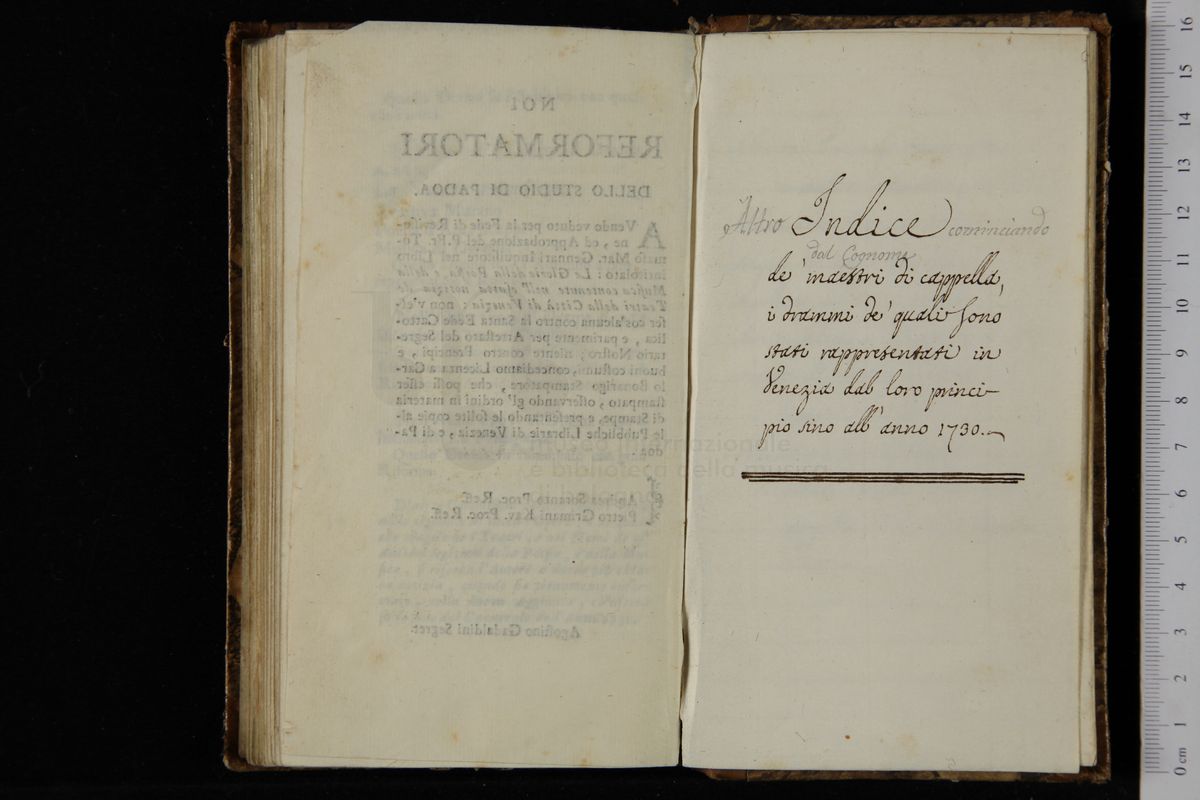 NOI
REFORMATORI
DELLO STUDIO DI PADOA.
AVendo veduto per la Fede di Revisio-
ne, ed Approbazione del P.Fr. To-
maso Mar. Gennari Inquisitore nel Libro
intitolato: Le Glorie della Poesia, e della
Musica contenute nell' esatta notizia de
Teatri della Città di Venezia: non v'es-
ser cos'alcuna contro la Santa Fede Catto-
lica, e parimente per Attestato del Segre-
tario Nostro; niente contro Prencipi, e
buoni costumi, concediamo Licenza a Car-
lo Bonarigo Stampatore, che possi esser
stampato, osservando gl' ordini in materia
di Stampe, e presentando le solite copie al-
le Pubbliche Librarie di Venezia, e di Pa-
doa.
Andrea Soranzo Proc. Reff.
Pietro Grimani Kav. Proc. Reff.
Agostino Gadaldini Segret.
Altro Indice cominciando
dal Cognome
de' maestri di cappella,
i drammi de' quali sono
stati rappresentati in
Venezia dal loro princi-
pio sino all' anno 1730.
internazionale
e biblioteca della musica
16
15
14
13
12
11
10
9
8
7
6
5
4
3
2
1
0 cm